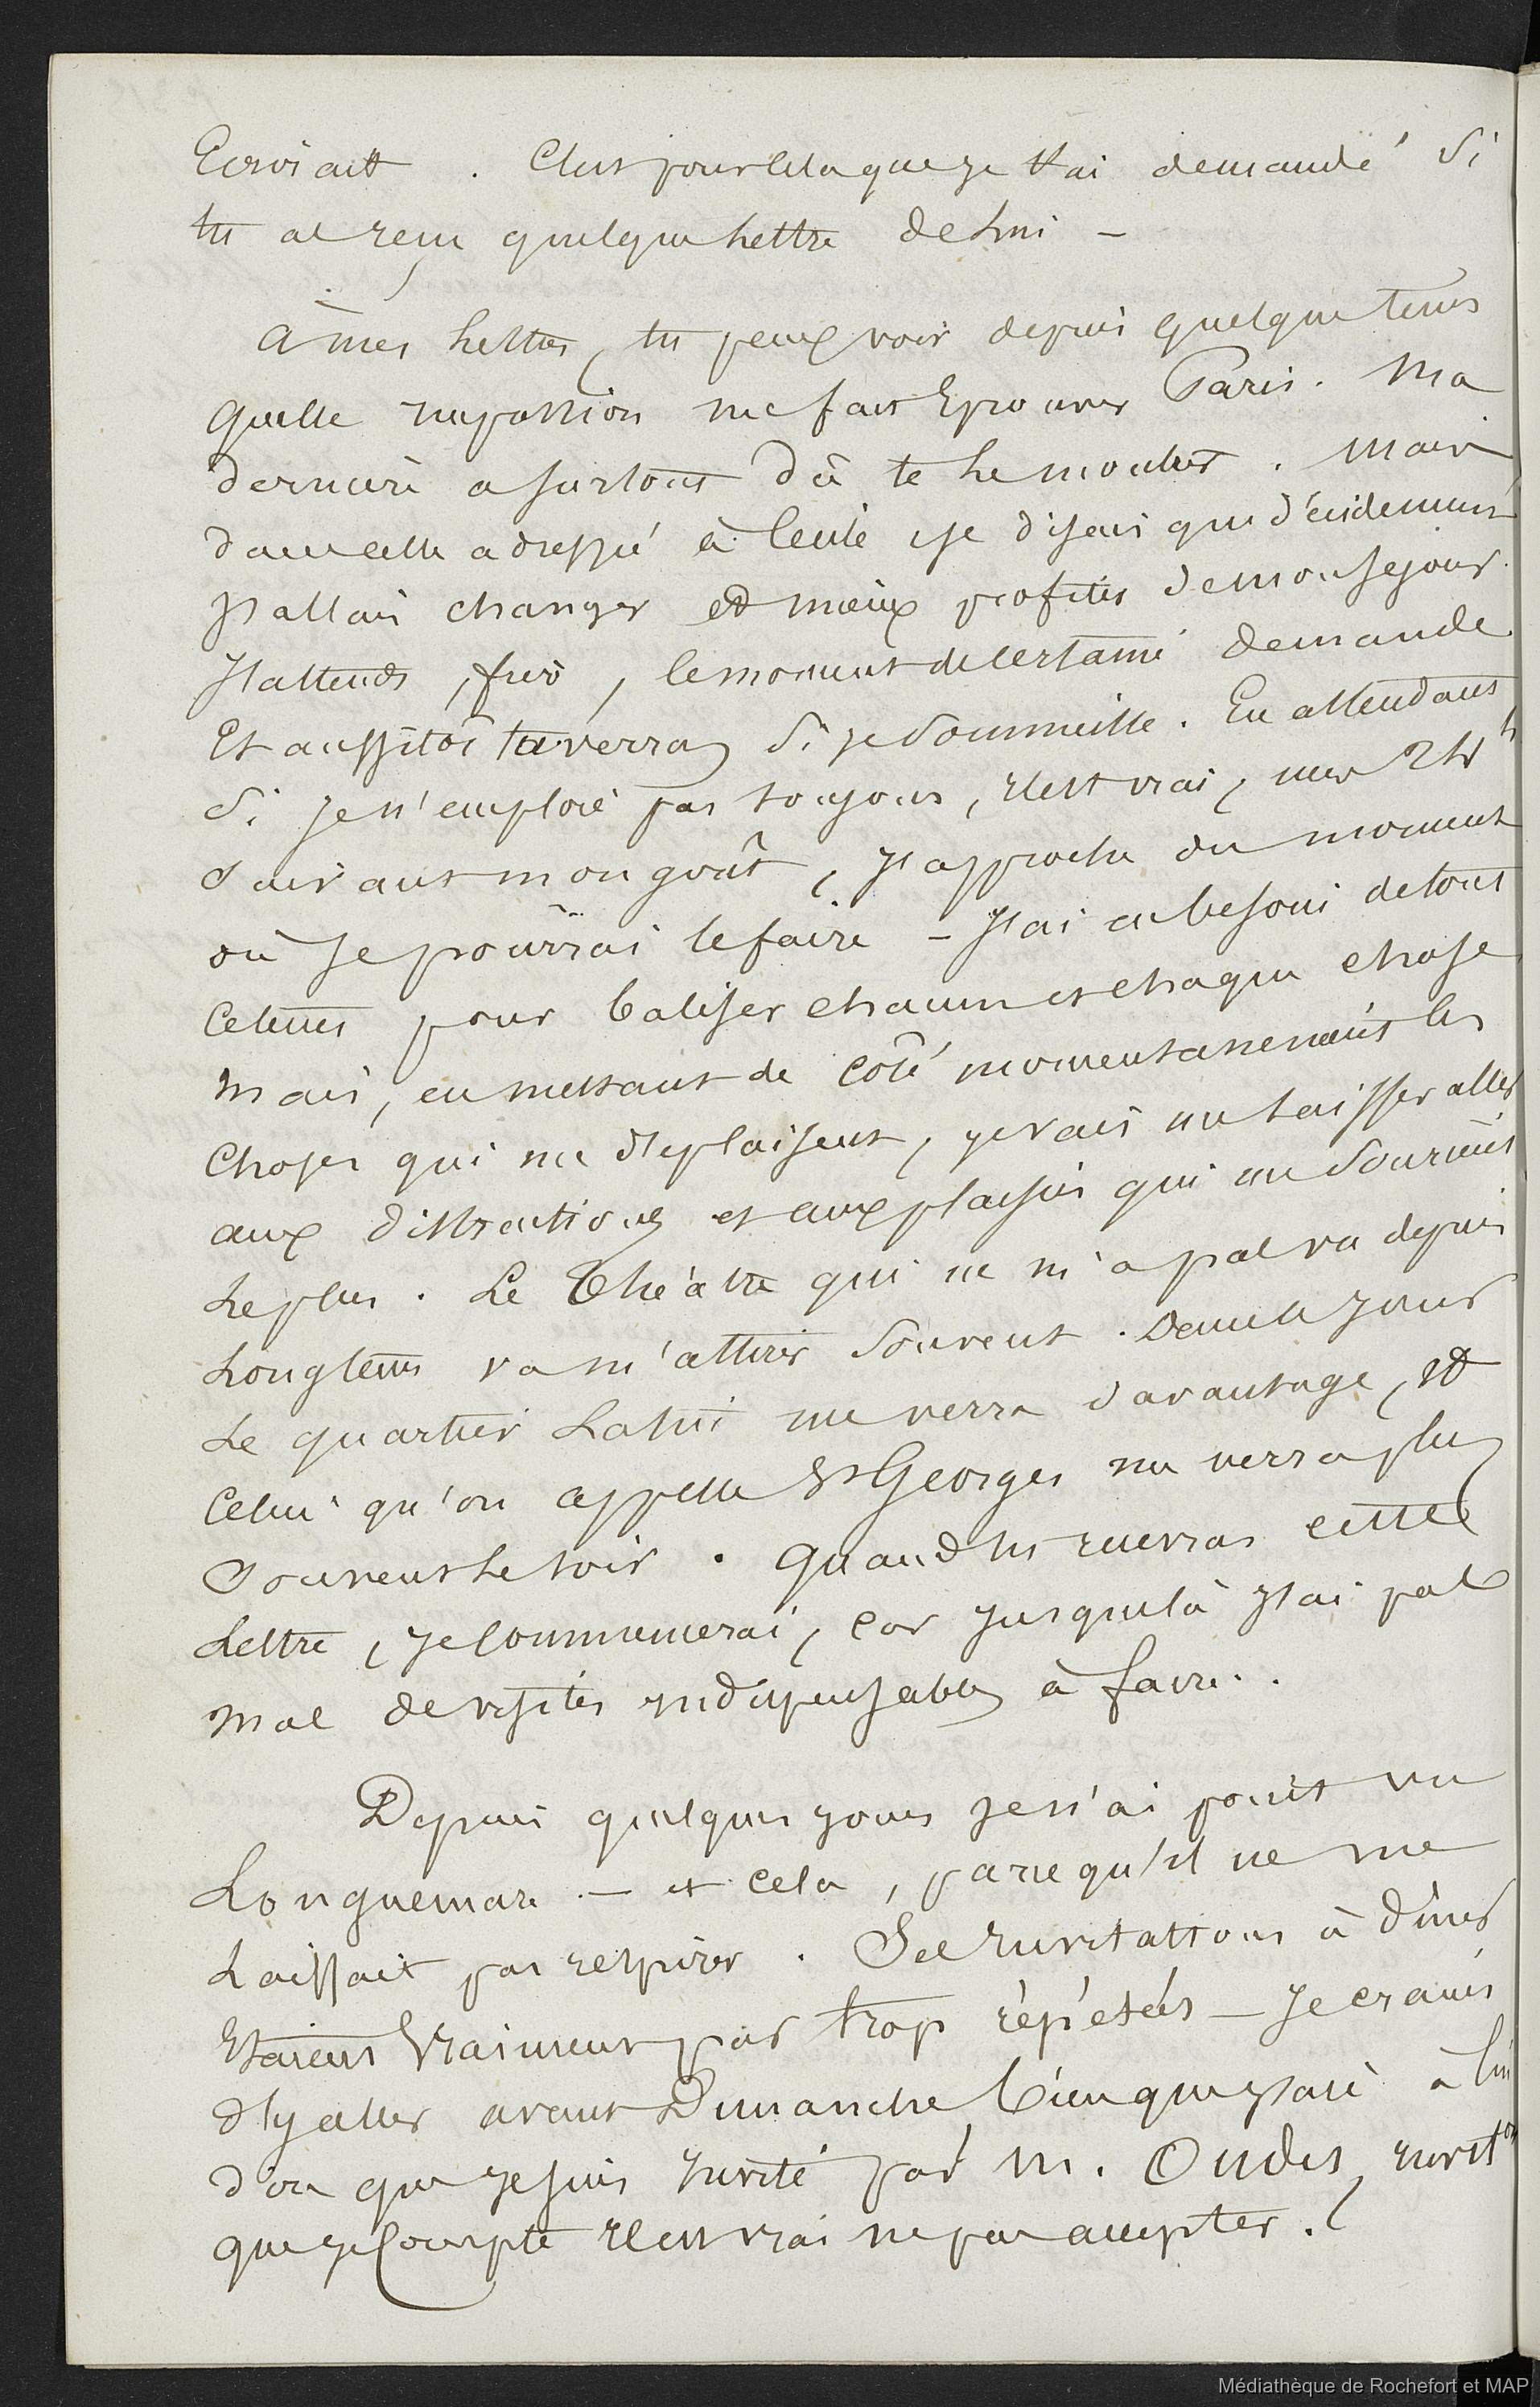 Ecrivait. C'est pour cela que je t'ai demandé si
tu as reçu quelque lettre de lui –
A mes lettres, tu peux voir depuis quelque tems
quelle impression me fait éprouver Paris. Ma
dernière a surtout dû te le montrer. Mais
dans celle adressée à je disais que décidemment
j'allais changer et mieux profiter de mon séjour.
J'attends, , le moment de certaine demande
Et aussitôt tu verras si je sommeille. En attendant
si je n'emploie pas toujours, il est vrai, mes
suivant mon goût, j'approche du moment
où je pourrai le faire – J'ai eu besoin de tout
ce tems pour baliser chacun et chaque chose
mais, en mettant de côté momentanément les
choses qui me déplaisent, je vais me laisser aller
aux distractions et aux plaisirs qui me sourient
le plus. Le Théâtre qui ne m'a pas vu depuis
longtems va m'attirer souvent. Dans le jour
Le quartier Latin me verra davantage, et
Celui qu'on appelle St Georges me verra plus
souvent le soir. Quand tu recevras cette
Lettre, je commencerai, car jusque là j'ai pas
mal de visites indispensables à faire.
Depuis quelques jours je n'ai point vu
Longuemare – et cela, parce qu'il ne me
Laissait pas respirer. Ses invitations à dîner
Etaient vraiment par trop répétées – Je crains
d'y aller avant Dimanche bien que j'aie à lui
dire que je suis invité par M. Oudet, invit^on
que je compte il est vrai ne pas accepter.